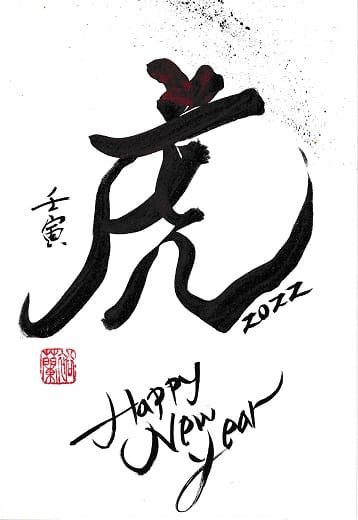 虎
壬寅
2022
Happy
New
Year